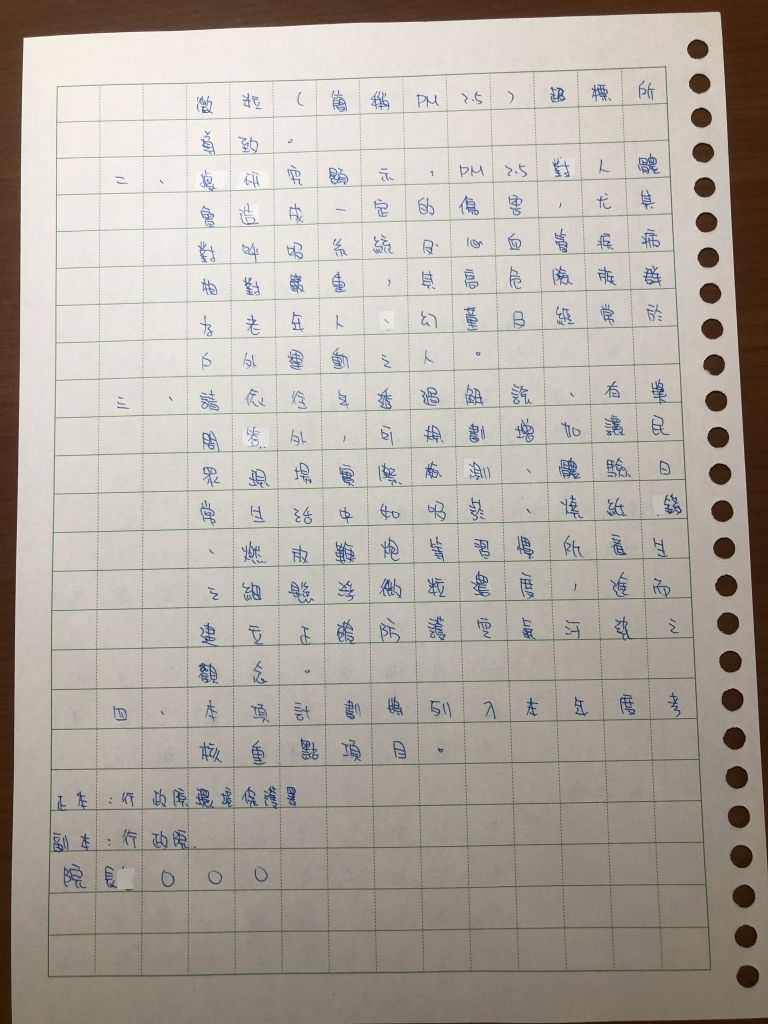 微粒(簡稱PM2.5)超標所
導致。
二、據研究顯示,PM2.5對人體
會造成一定的傷害,尤其
對呼吸系統及心血管疾病
相對嚴重,其高危險族群
為老年人、幼童及經常於
戶外運動之人。
三、請依往年透過解說、有獎
問答外,可規劃增加讓民
眾現場實際檢測、體驗日
常生活中如吸菸、燒紙錢
、燃放鞭炮等習慣所產生
之細懸浮微粒濃度,進而
建立正確防護空氣汙染之
觀念。
四、本項計劃將列入本年度考
核重點項目。
正本:行政院環境保護署
副本:行政院
院長 ○○○